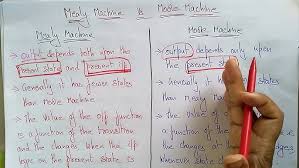 Mealy Machine Vs Moore Machine
Mealy Machine
→ output depends both upon the
present state and present i/p
→ Generally it has fewer states
than moore machine
→ The value of the o/p function
is a function of the transition
and the changes, when the i/p
logic on the present state is
Moore Machine
→ output depends only upon
the present state
→ Generally it has states
than mealy
→ The value of
a function of the
state and the changes
whenever state